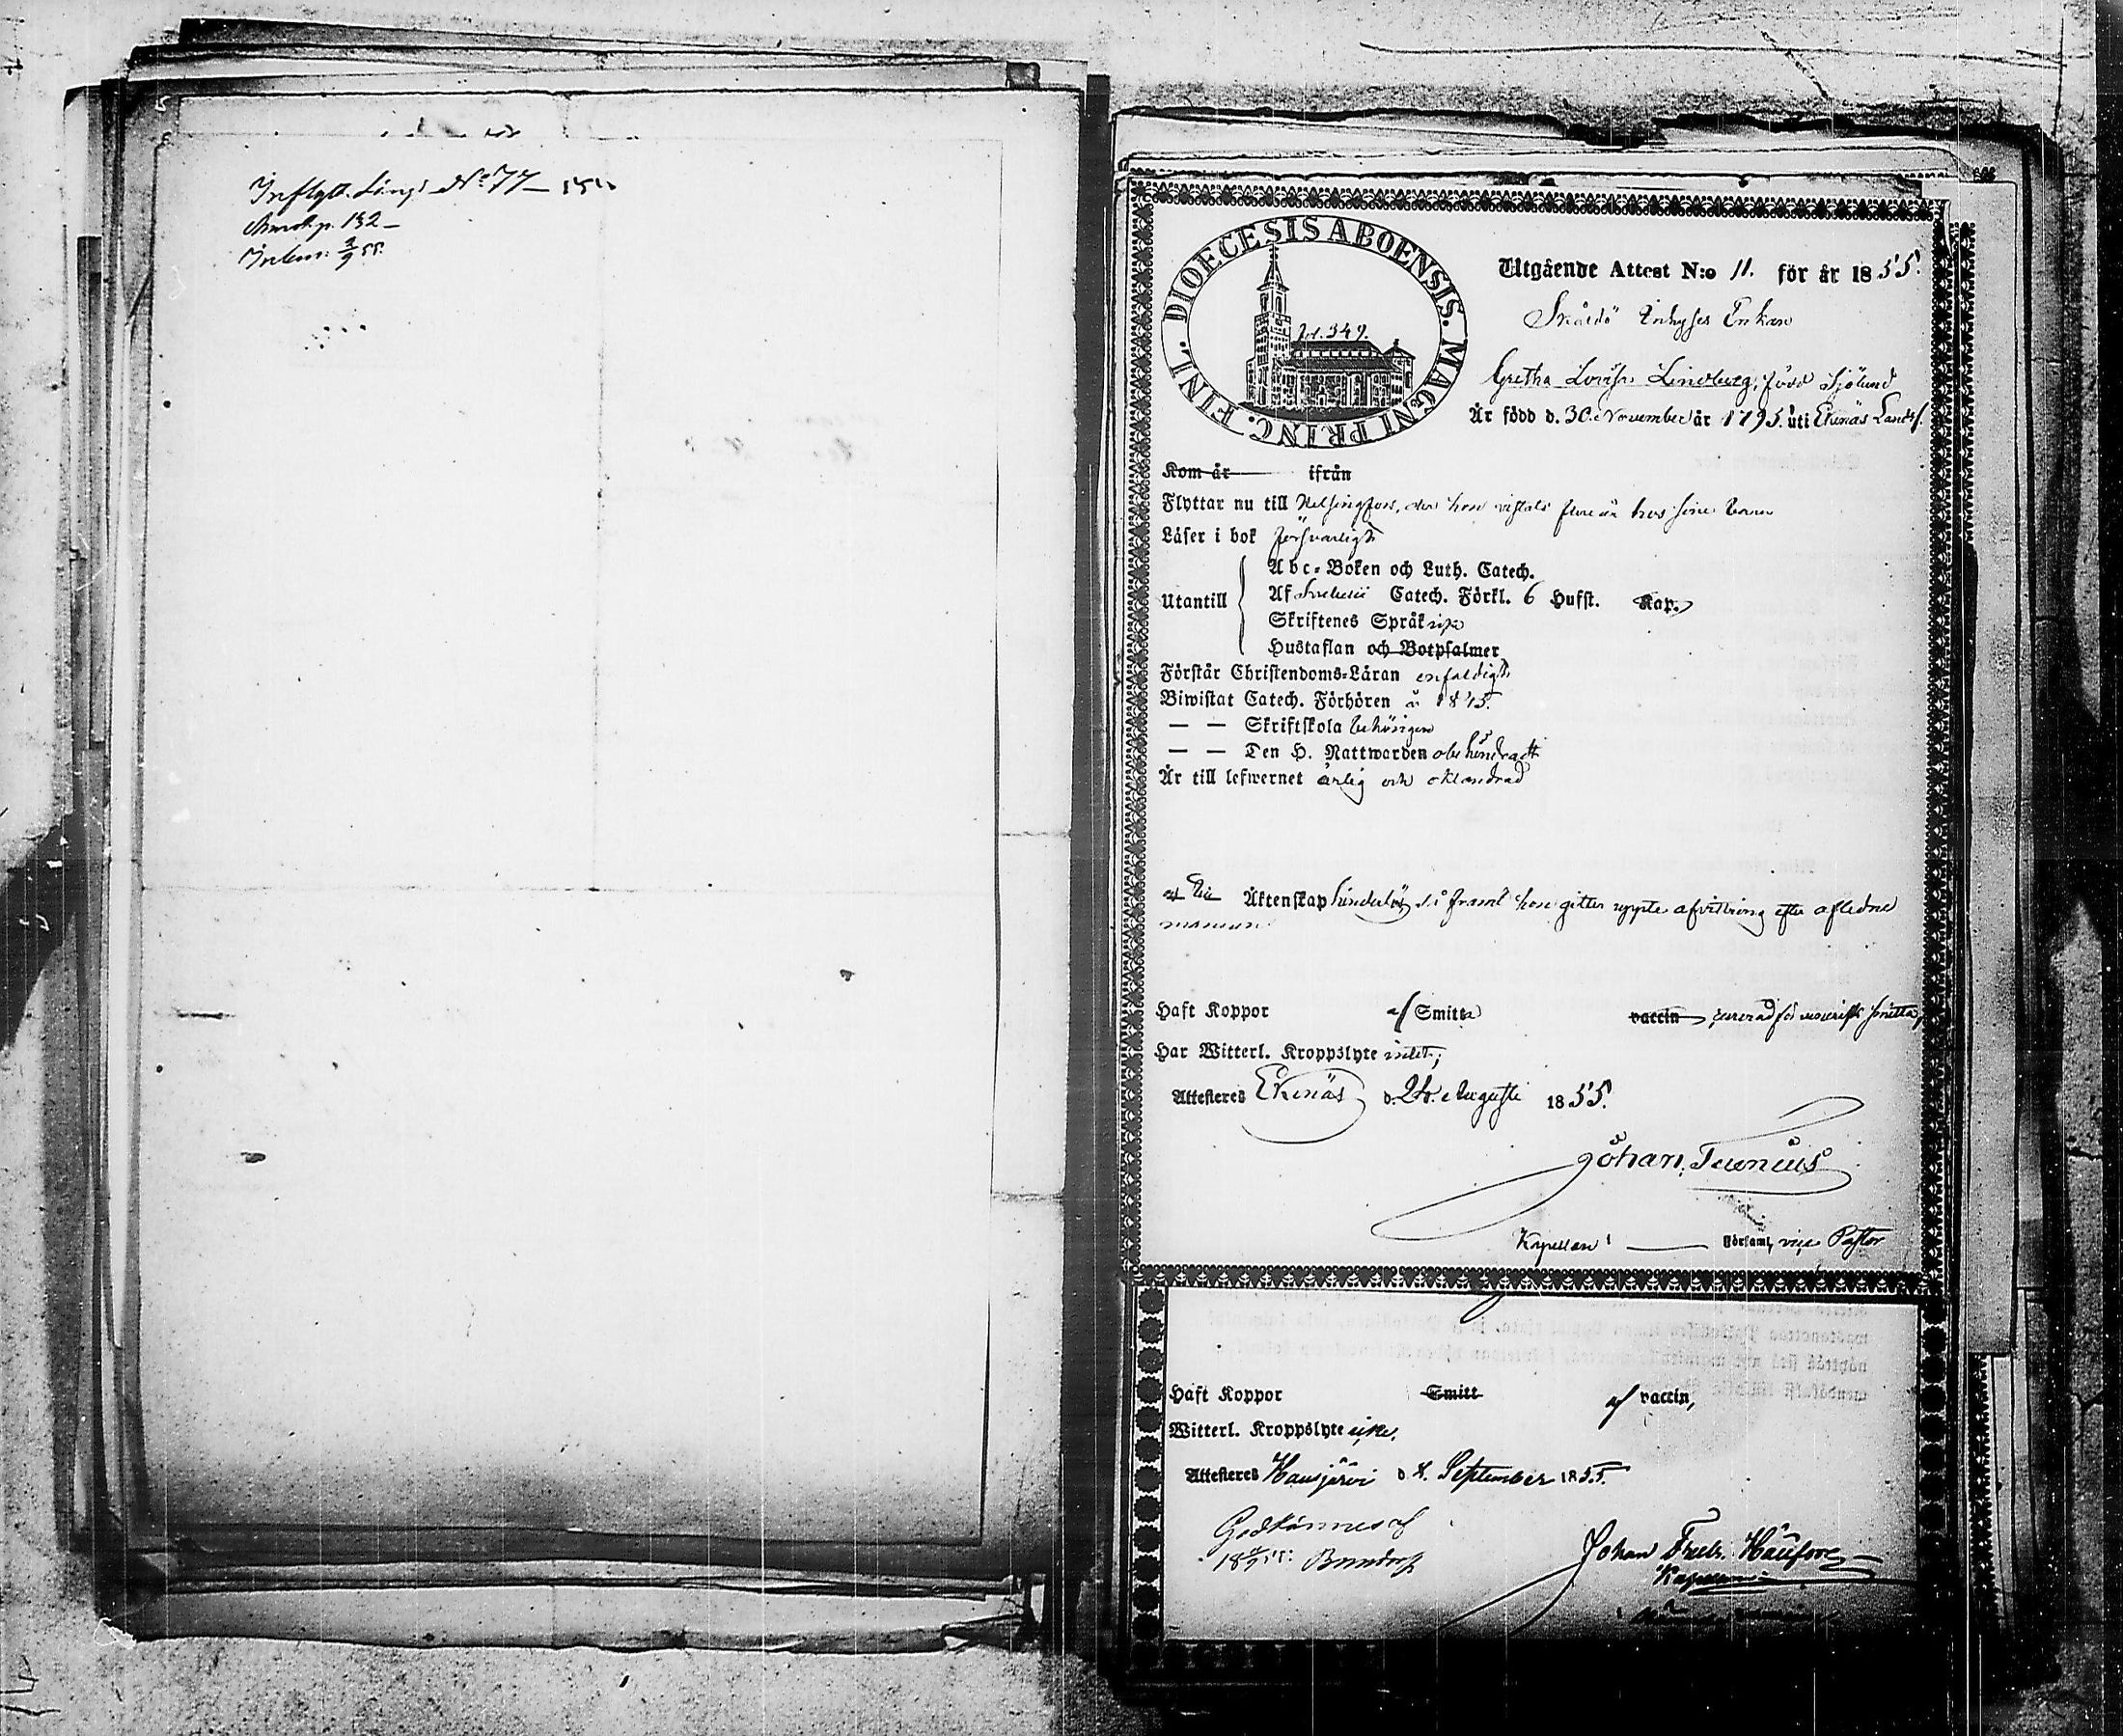 Inflytt. Läng. No 77 —
p. 132 —
Inlem: 3/9 55.
DIOECESIS ABOENSIS. MAGNI PRINC. FINL.
349.
Utgående Attest N:o 11. för år 1855.
Skåldö Inhyses Enkan
Gretha Lovisa Lindberg, född Sjölund
Är född d. 30 November år 1795. uti Ekenäs Landsf.
Kom år ifrån
Flyttar nu till Helsingfors, der hon vistats flere år hos sine barn
Läser i bok försvarligt
Utantill
Abc-Boken och Luth. Catech.
Af Svebelii Catech. Förkl. 6 Hufst. Kap.
Skriftenes Språk
Hustaflan och Botpsalmer
Förstår Christendoms-Läran enfaldigt
Biwistat Catech. Förhören å 1845.
— — Skriftskola behörigen
— — Den H. Nattwarden obehindradt
Är till lefwernet ärlig och oklandrad
Äktenskap hinderlös så framt hon gitter uppte afvittring efter afledne
mannen.
Haft Koppor af Smitta vaccin, för venerisk smitta,
Har Witterl. Kroppslyte intet;
Attesteres Ekenäs d. 24. Augusti 1855.
Johan
Kapellan Församl. vice Pastor
Haft Koppor Smitt af vaccin,
Witterl. Kroppslyte icke.
Attesteres Hausjärvi d 4. September 1855.
Godkännes af
18 4/9 55.
Johan Fredr.
Kapellan